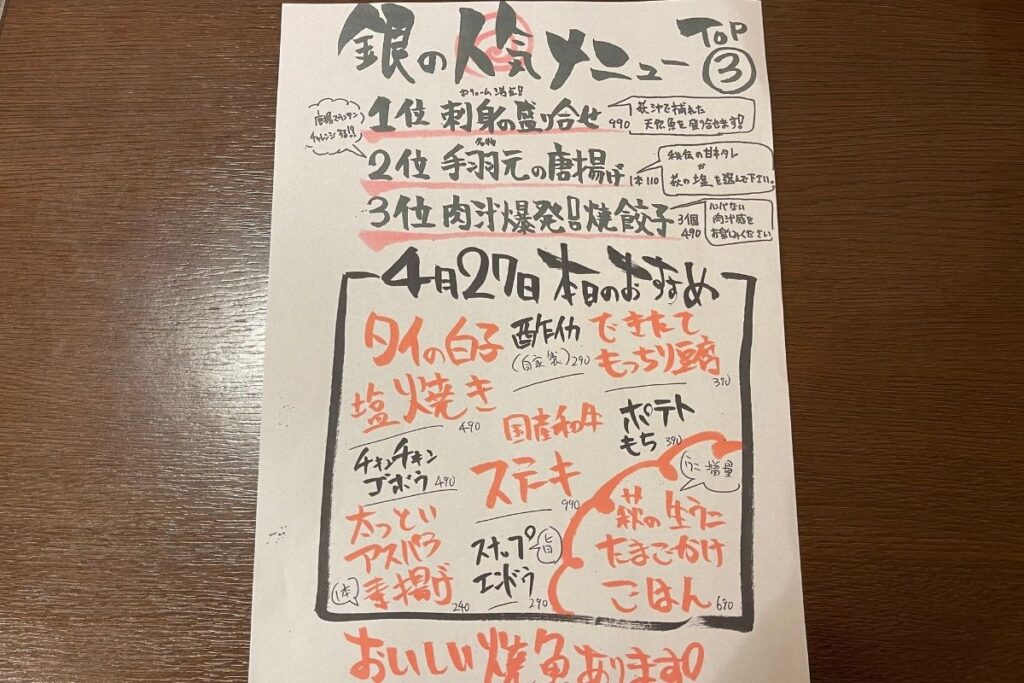 銀の人気メニュー TOP③
1位 刺身の盛り合せ 990
萩沖で捕れた
天然魚を盛り合せます!
チャレンジする!!
名物
2位 手羽元の唐揚げ 1本110
秘伝の甘辛タレ
か
萩の塩を選んで下さい。
3位 肉汁爆発!焼餃子 3個 490
ハンパない
肉汁感を
お楽しみください
4月27日 本日のおすすめ
タイの白子
塩焼き 490
酢イカ
(自家製) 290
できたて
もっちり豆腐 390
国産和牛
ステーキ 990
ポテト
もち 390
チキンチキン
ゴボウ 490
うに増量
萩の生うに
たまごかけ
ごはん 690
太っとい
アスパラ
1本 素揚げ 240
スナップ 旨
エンドウ 290
おいしい焼魚あります!